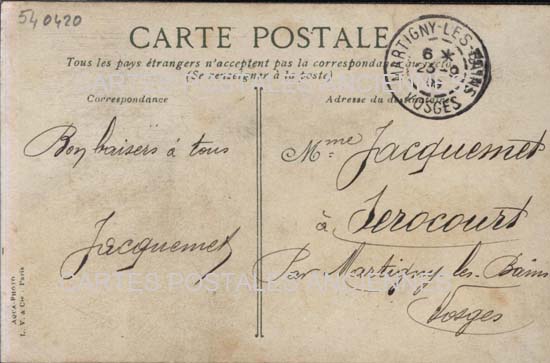 540420
CARTE POSTALE
Tous les pays étrangers n'acceptent pas la correspondance au recto
(Se renseigner à la poste)
Correspondance
Adresse du destinataire
MARTIGNY-LES-BAINS
6 *
23 -9
VOSGES
Bon baisers à tous
Jacquemet
Mme Jacquemet
à
Serocourt
Par Martigny les Bains
Vosges
CARTES POSTALES ANCIENNES
CARTES POSTALES ANCIENNES
AQUA-PHOTO
L. V. & Cie - Paris